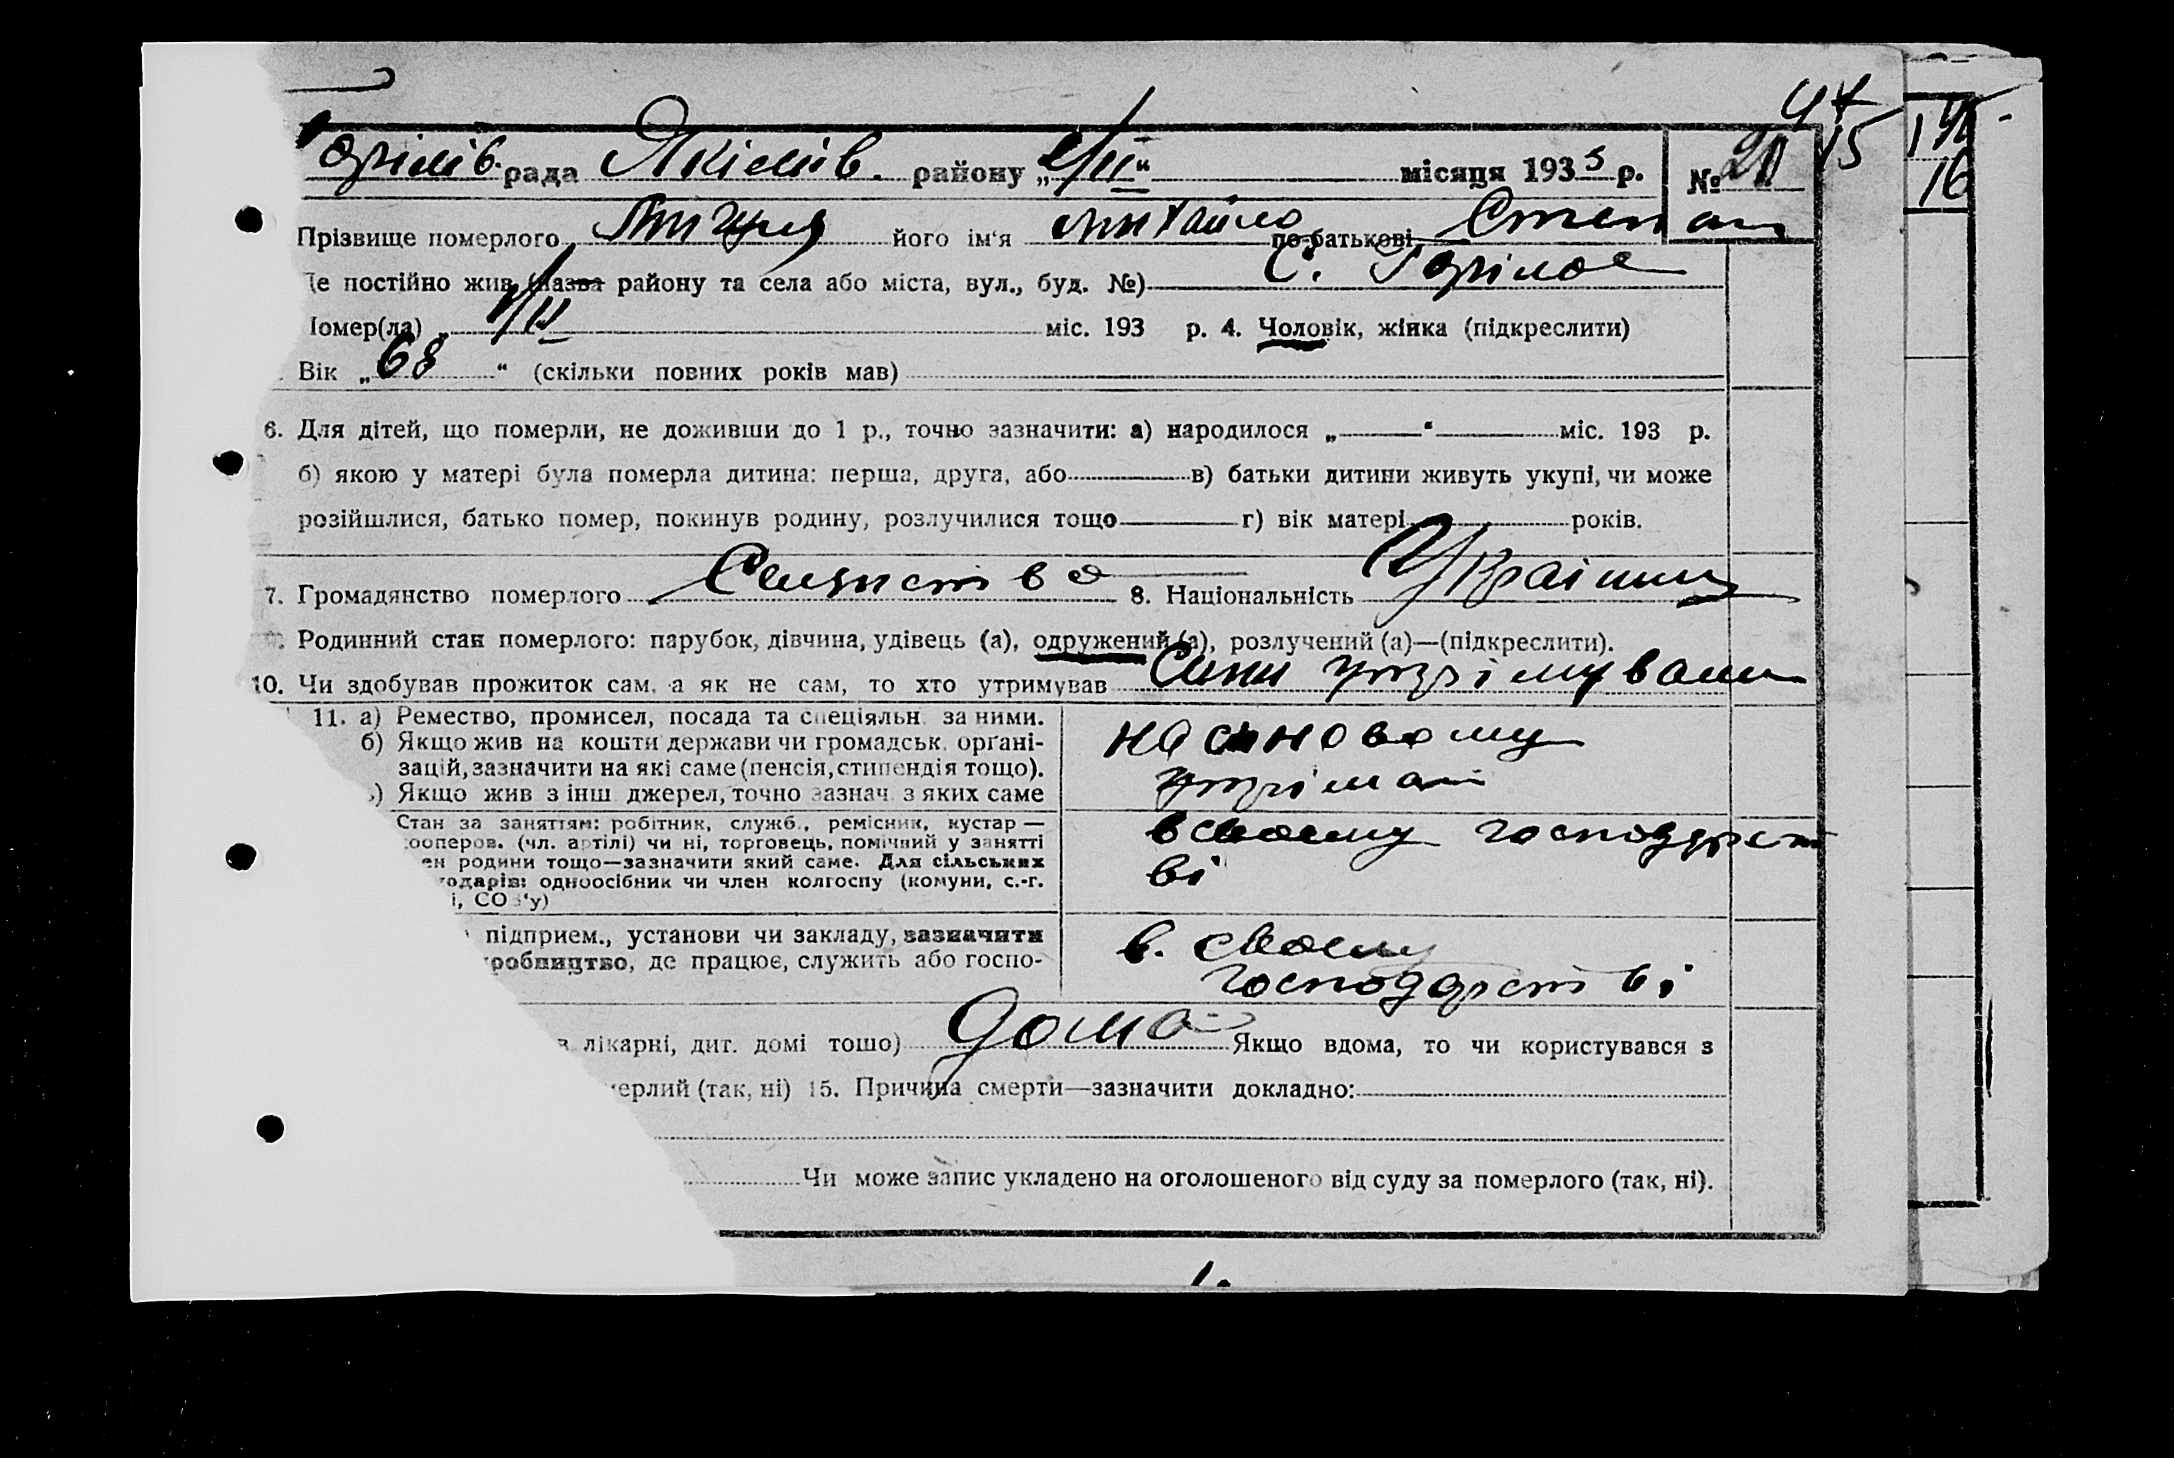 47
рада Якімів. району „2/II“ місяця 1933 р. № 20
15
Прізвище померлого його ім‘я Михайло по-батькові Степан
де постійно жив (назва району та села або міста, вул., буд. №) С.
Іомер(ла) „ 1/II міс. 193 р. 4. Чоловік, жінка (підкреслити)
Вік „68“ (скільки повних років мав)
6. Для дітей, що померли, не доживши до 1 р., точно зазначити: а) народилося „ “ міс. 193 р.
б) якою у матері була померла дитина: перша, друга, або в) батьки дитини живуть укупі, чи може
розійшлися, батько помер, покинув родину, розлучилися тощо г) вік матері років.
7. Громадянство померлого 8. Національність Україниц
Родинний стан померлого: парубок, дівчина, удівець (а), одружений (а), розлучений (а)—(підкреслити).
10. Чи здобував прожиток сам, а як не сам, то хто утримував Сини утрімували
11. а) Ремество, промисел, посада та спеціяльн. за ними.
б) Якщо жив на кошти держави чи громадськ. органі-
зацій, зазначити на які саме (пенсія, стипендія тощо).
в) Якщо жив з інш джерел, точно зазнач. з яких саме
на синовому
утріман
Стан за заняттям: робітник, служб., ремісник, кустар —
кооперов. (чл. артілі) чи ні, торговець, помічний у занятті
ен родини тощо—зазначити який саме. Для сільських
одарів: одноосібник чи член колгоспу (комуни, с.-г.
і, СОЗ‘у)
в своему господарст
ві
підприєм., установи чи закладу, зазначити
робництво, де працює, служить або госпо-
в. своему
господарстві
в лікарні, дит. домі тощо) дома Якщо вдома, то чи користувався з
ерлий (так, ні) 15. Причина смерти—зазначити докладно:
Чи може запис укладено на оголошеного від суду за померлого (так, ні).
16